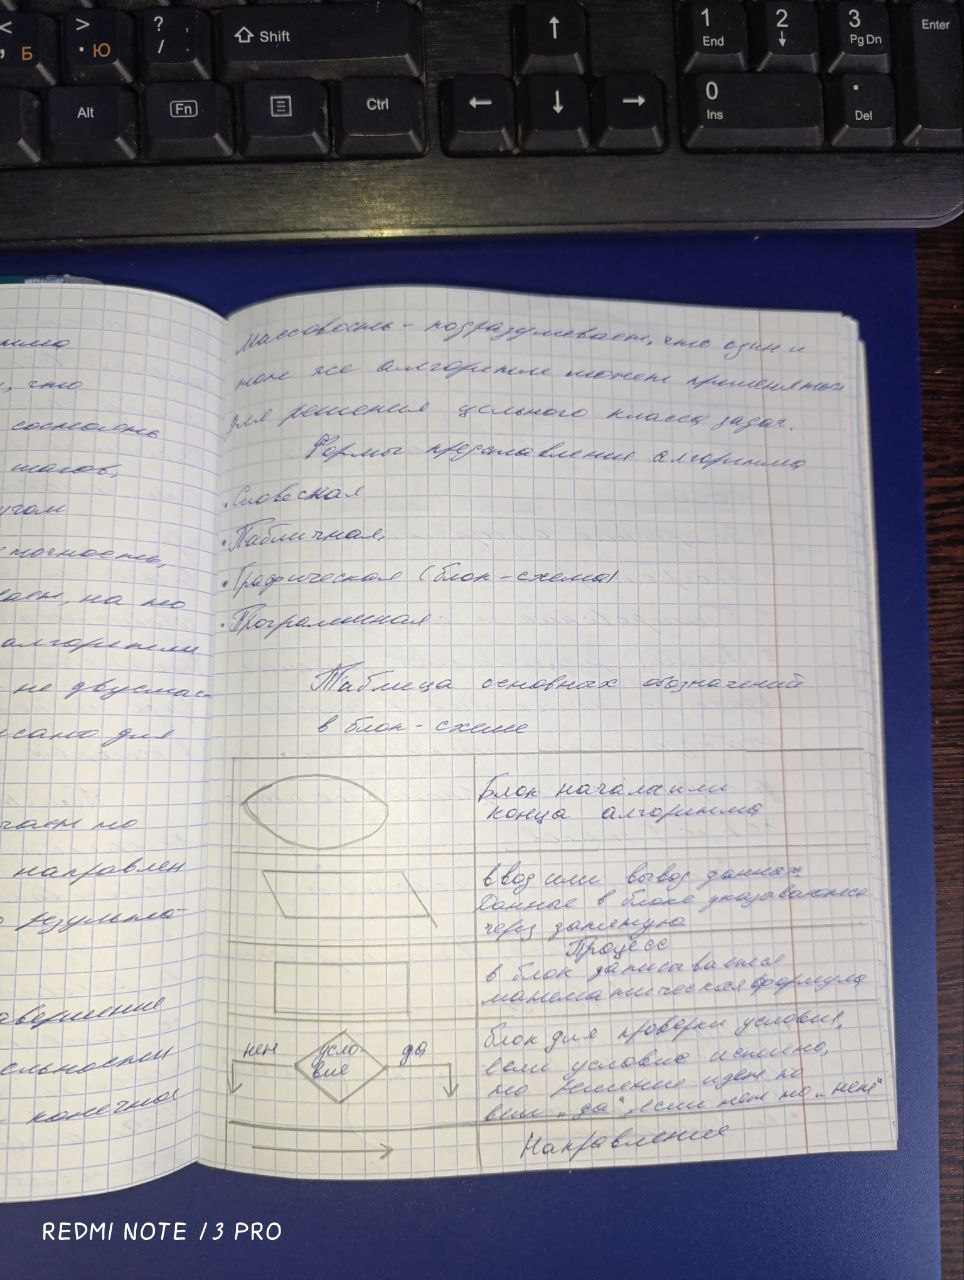 < , Б
> . Ю
? / ,
Shift
1 End
2
3 PgDn
Enter
Alt
Fn
Ctrl
0 Ins
. Del
, что
состоять
шагов,
точность,
на то
алгоритм
не двусмыс-
для
но
направлен
результа-
завершение
конечног
Массовость - подразумевает, что один и
тот же алгоритм может применяться
для решения цельного класса задач.
Формы предславления алгоритма
• Словесная
• Табличная,
• Графическая (блок-схема)
• Программная
Таблица основных обозначений
в блок-схеме
Блок начала или
конца алгоритма
ввод или вывод данных
Данные в блоке указываются
через запятую
Процесс
в блок записывается
математическая формула
нет усло- да
вие
блок для проверки условия,
если условие истино,
то решение идет по
ветви „да“, если нет то „нет“
Направление
REDMI NOTE 13 PRO